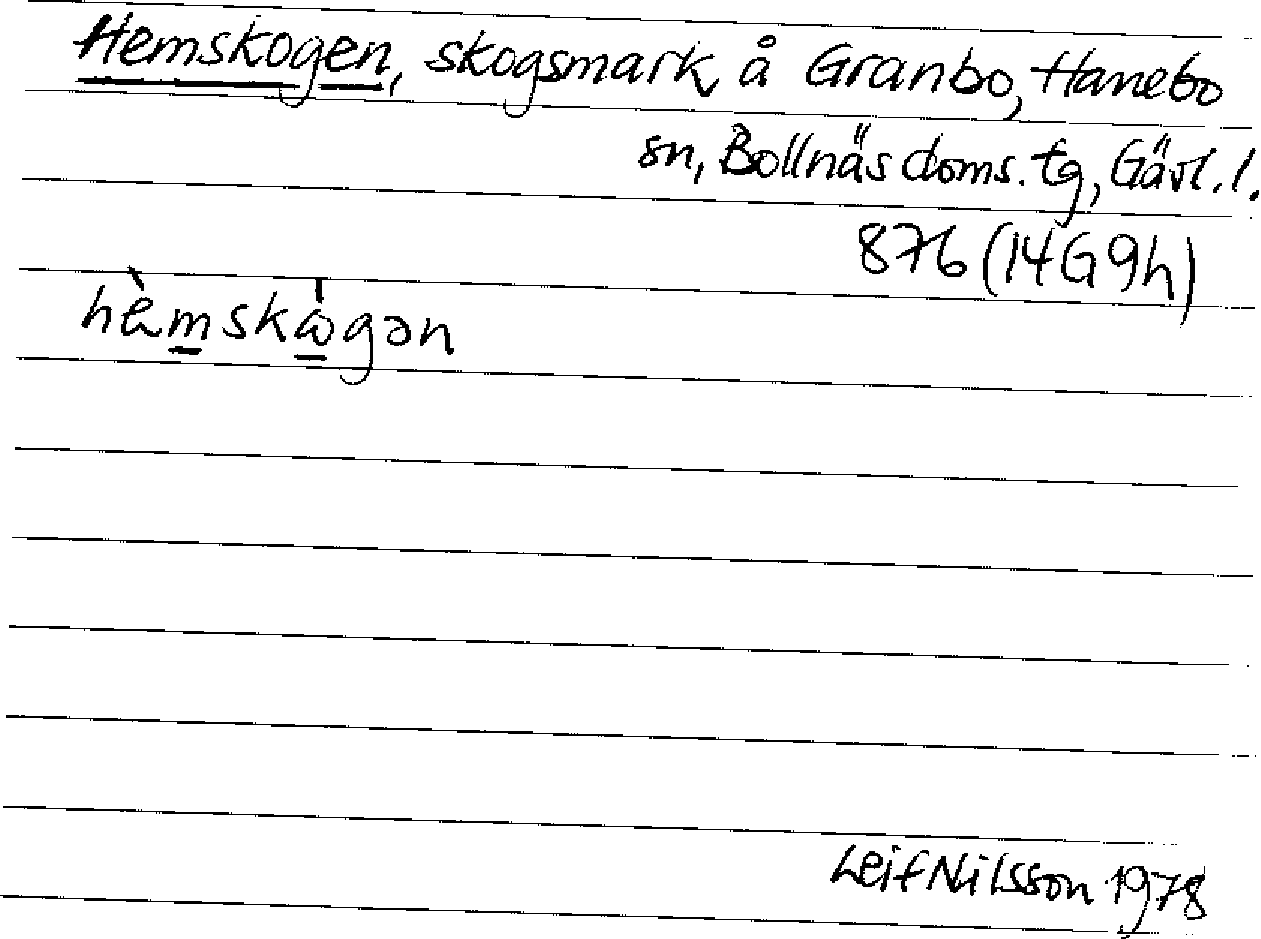 Hemskogen, skogsmark å Granbo, Hanebo
sn, Bollnäs doms. tg, Gävl. l.
876 (14G9h)
hè̀mskὼgən
Leif Nilsson 1978